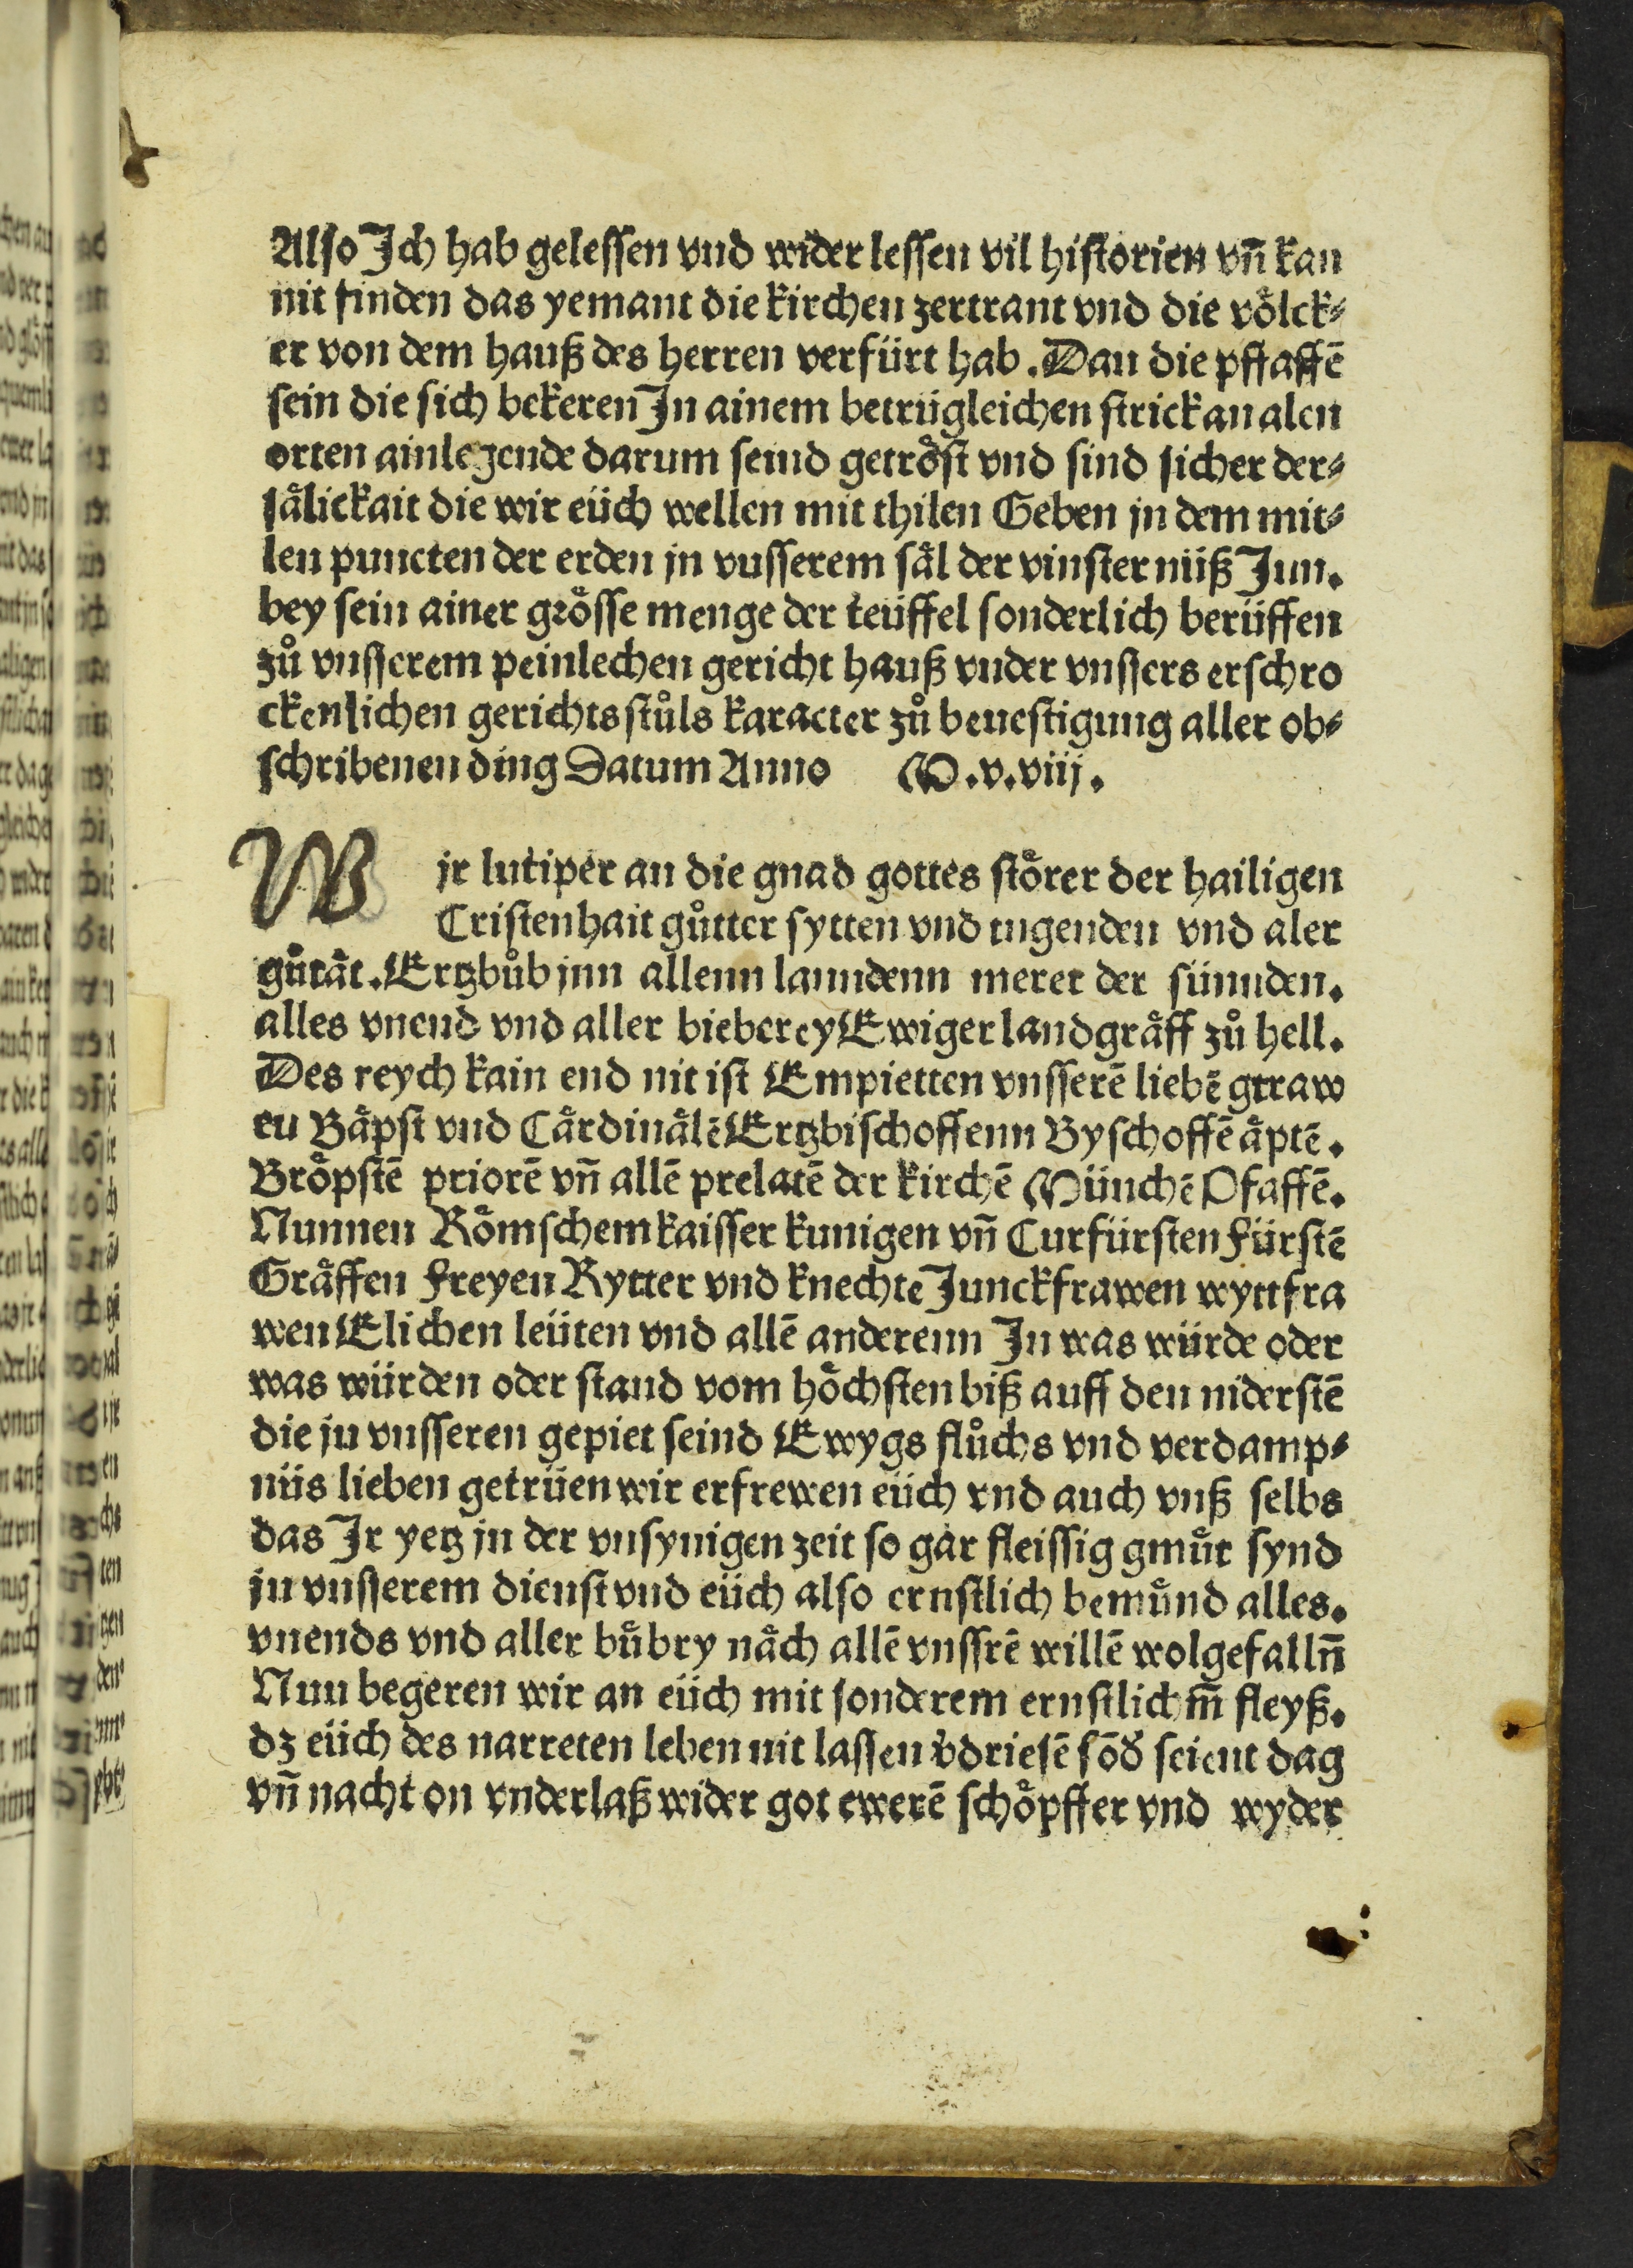 Also Jch hab gelessen vnd wider lessen vil historien vn̄ kan
nit finden das yemant die kirchen zertrant vnd die voͤlck⸗
er von dem hauß des herren verfürt hab. Dan die pffaffē
sein die sich bekeren Jn ainem betrügleichen strick an alen
orten ainlegende darum seind getroͤst vnd sind sicher der⸗
saͤlickait die wir eüch wellen mit thilen Geben jn dem mit⸗
len puncten der erden jn vnsserem saͤl der vinster nüß Jnn.
bey sein ainer groͤsse menge der teüffel sonderlich berüffen
zuͦ vnsserem peinlechen gericht hauß vnder vnssers erschro
ckenlichen gerichts stuͦls karacter zuͦ beuestigung aller ob⸗
schribenen ding Datum Anno M.v.viij.
Wjr lutiper an die gnad gottes stoͤrer der hailigen
Cristenhait guͦtter sytten vnd tugenden vnd aler
guͦtaͤt. Ertzbuͦb jnn allenn lanndenn merer der sünnden.
alles vnend vnd aller bieberey Ewiger landgraͤff zuͦ hell.
Des reych kain end nit ist Empietten vnsserē liebē gtraw
en Baͤpst vnd Caͤrdinaͤlē Ertzbischoffenn Byschoffē aͤptē.
Broͤpstē priorē vn̄ allē prelatē der kirchē Münchē Pfaffē.
Nunnen Roͤmschem kaisser kunigen vn̄ Curfürsten Fürstē
Graͤffen Freyen Rytter vnd knechte Junckfrawen wyttfra
wen Elichen leüten vnd allē anderenn Jn was würde oder
was würden oder stand vom hoͤchsten biß auff den niderstē
die jn vnsseren gepiet seind Ewygs fluͦchs vnd verdamp⸗
nüs lieben getrüen wir erfrewen eüch vnd auch vnß selbs
das Jr yetz jn der vnsynigen zeit so gar fleissig gmuͤt synd
jn vnsserem dienst vnd eüch also ernstlich bemuͤnd alles.
vnends vnd aller buͤbry naͤch allē vnssrē willē wolgefalln̄
Nun begeren wir an eüch mit sonderem ernstlichm̄ fleyß.
dz eüch des narreten leben nit lassen v̓driesē sōd̓ seient dag
vn̄ nacht on vnderlaß wider got ewerē schoͤpffer vnd wyder